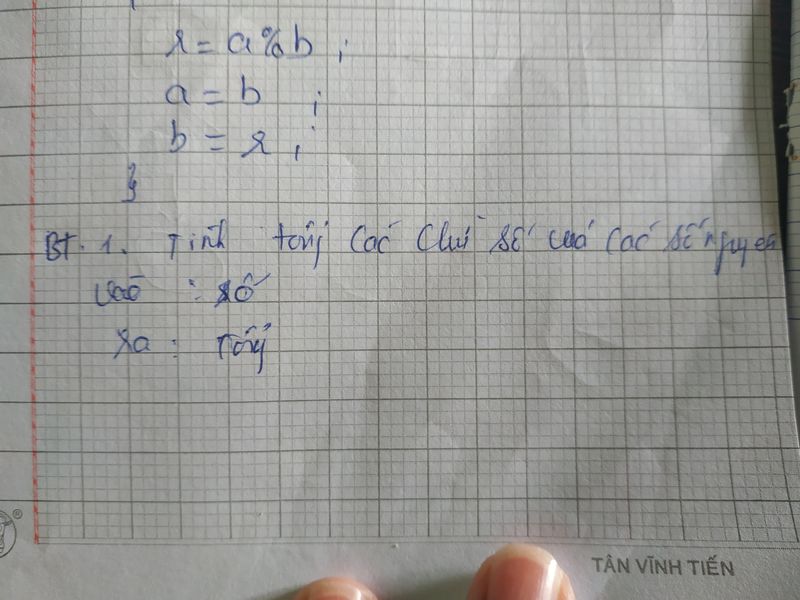 r = a%b ;
a = b ;
b = r ;
}
BT. 1. Tính tổng các chữ số của các số nguyên
vào : số
ra : Tổng
®
TÂN VĨNH TIẾN